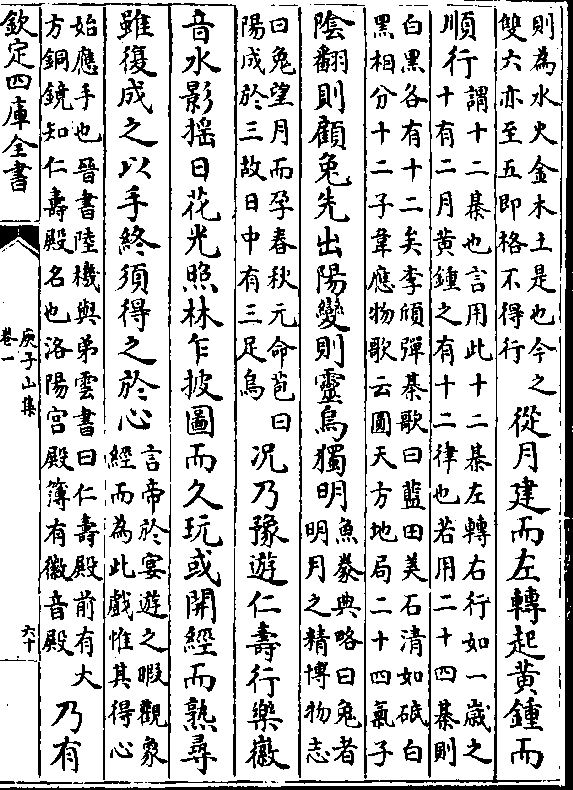 則為水火金木土是也今之
雙六亦至五即格不得行
從月建而左轉起黃鍾而
順行
謂十二棊也言用此十二棊左轉右行如一歲之
十有二月黃鍾之有十二律也若用二十四棊則
白黑各有十二矣李頎彈棊歌曰藍田美石清如砥白
黑相分十二子韋應物歌云圓天方地局二十四氣子
陰翻則顧兔先出陽變則靈烏獨明
魚豢典略曰兔者
明月之精博物志
曰兔望月而孕春秋元命苞曰
陽成於三故日中有三足烏
况乃豫遊仁壽行樂徽
音水影摇日花光照林乍披圖而久玩或開經而熟尋
雖復成之以手終須得之於心
言帝於宴遊之暇觀象
經而為此戲惟其得心
始應手也晉書陸機與弟雲書曰仁壽殿前有大
方銅鏡知仁壽殿名也洛陽宫殿簿有徽音殿
乃有
欽定四庫全書
庾子山集
卷一
六十